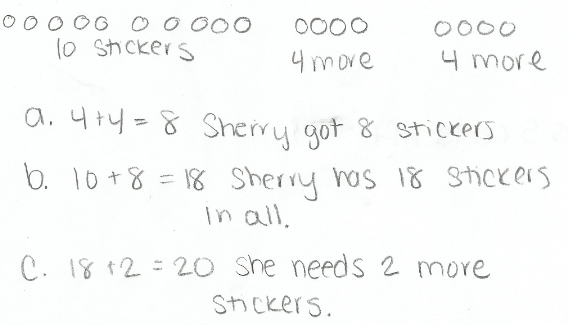 10 stickers 4 more 4 more
a. 4+4=8 Sherry got 8 stickers
b. 10+8=18 Sherry has 18 stickers
in all.
C. 18+2=20 She needs 2 more
stickers.